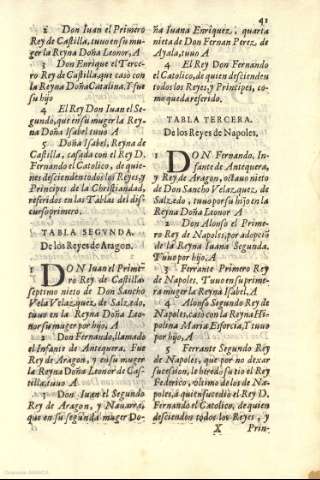 41
2 Don Iuan el Primero
Rey de Castilla, tuuo en su mu-
ger la Reyna Doña Leonor, A
3 Don Enrique el Terce-
ro Rey de Castilla, que casò con
la Reyna Doña Catalina. Y fue
su hijo
4 El Rey Don Iuan el Se-
gundo, que en su muger la Rey
na Doña Isabel tuuò A
5 Doña Isabel, Reyna de
Castilla, casada con el Rey D.
Fernando el Catolico, de quie-
nes descienden todos los Reyes, y
Principes de la Christiandad,
referidos en las Tablas del dis-
curso primero.
TABLA SEGVNDA.
De los Reyes de Aragon.
1 DON Iuan el Prime-
ro Rey de Castilla
septimo nieto de Don Sancho
Vela Velazquez, de Salzedo,
tuuo en la Reyna Doña Leo-
nor su muger por hijo, A
2 Don Fernando, llamado
el Infante de Antequera. Fue
Rey de Aragon, y en su muger
la Reyna Doña Leonor de Cas-
tilla, tuuo A
3 Don Iuan el Segundo
Rey de Aragon, y Nauarra,
que en su segunda muger Do-
ña Iuana Enriquez, quarta
nieta de Don Fernan Perez, de
Ayala, tuuo A
4 El Rey Don Fernando
el Catolico, de quien descienden
todos los Reyes, y Principes, co-
mo queda referido.
TABLA TERCERA.
De los Reyes de Napoles,
1 DON Fernando, In-
fante de Antequera,
y Rey de Aragon, octauo nieto
de Don Sancho Velazquez, de
Salzedo, tuuo por su hijo en la
Reyna Doña Leonor A
2 Don Alonso el Prime-
ro Rey de Napoles, por adopciõ
de la Reyna Iuana Segunda.
Tuuo por hijo, A
3 Ferrante Primero Rey
de Napoles. Tuuo en su prime-
ra muger la Reyna Isabel, A
4 Alonso Segundo Rey de
Napoles, casò con la Reyna Hi-
polina Maria Esforcia, Y tuuo
por hijo, A
5 Ferrante Segundo Rey
de Napoles, que por no dexar
sucesion, le heredò su tio el Rey
Federico, vltimo de los de Na-
poles, à quien sucediò el Rey D.
Fernando el Catolico, de quien
descienden todos los Reyes, y
X Prin-